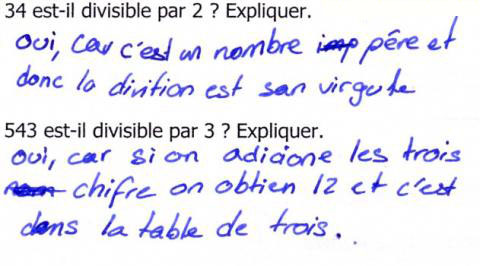 34 est-il divisible par 2 ? Expliquer.
oui, car c'est un nombre père et
donc la divition est san virgule
543 est-il divisible par 3 ? Expliquer.
oui, car si on adicione les trois
chifre on obtien 12 et c'est
dans la table de trois.